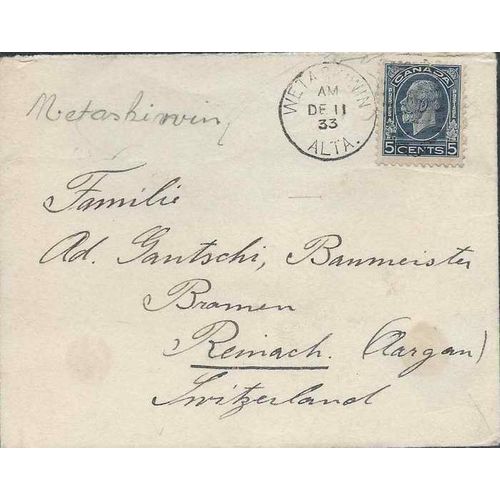 WETASKIWIN
AM
DE 11
33
ALTA.
CANADA
5 CENTS 5
Metaskiwin
Familie
Ad. Gautschi, Baumeister
Bromen
Reinach. (Aargau)
Switzerland